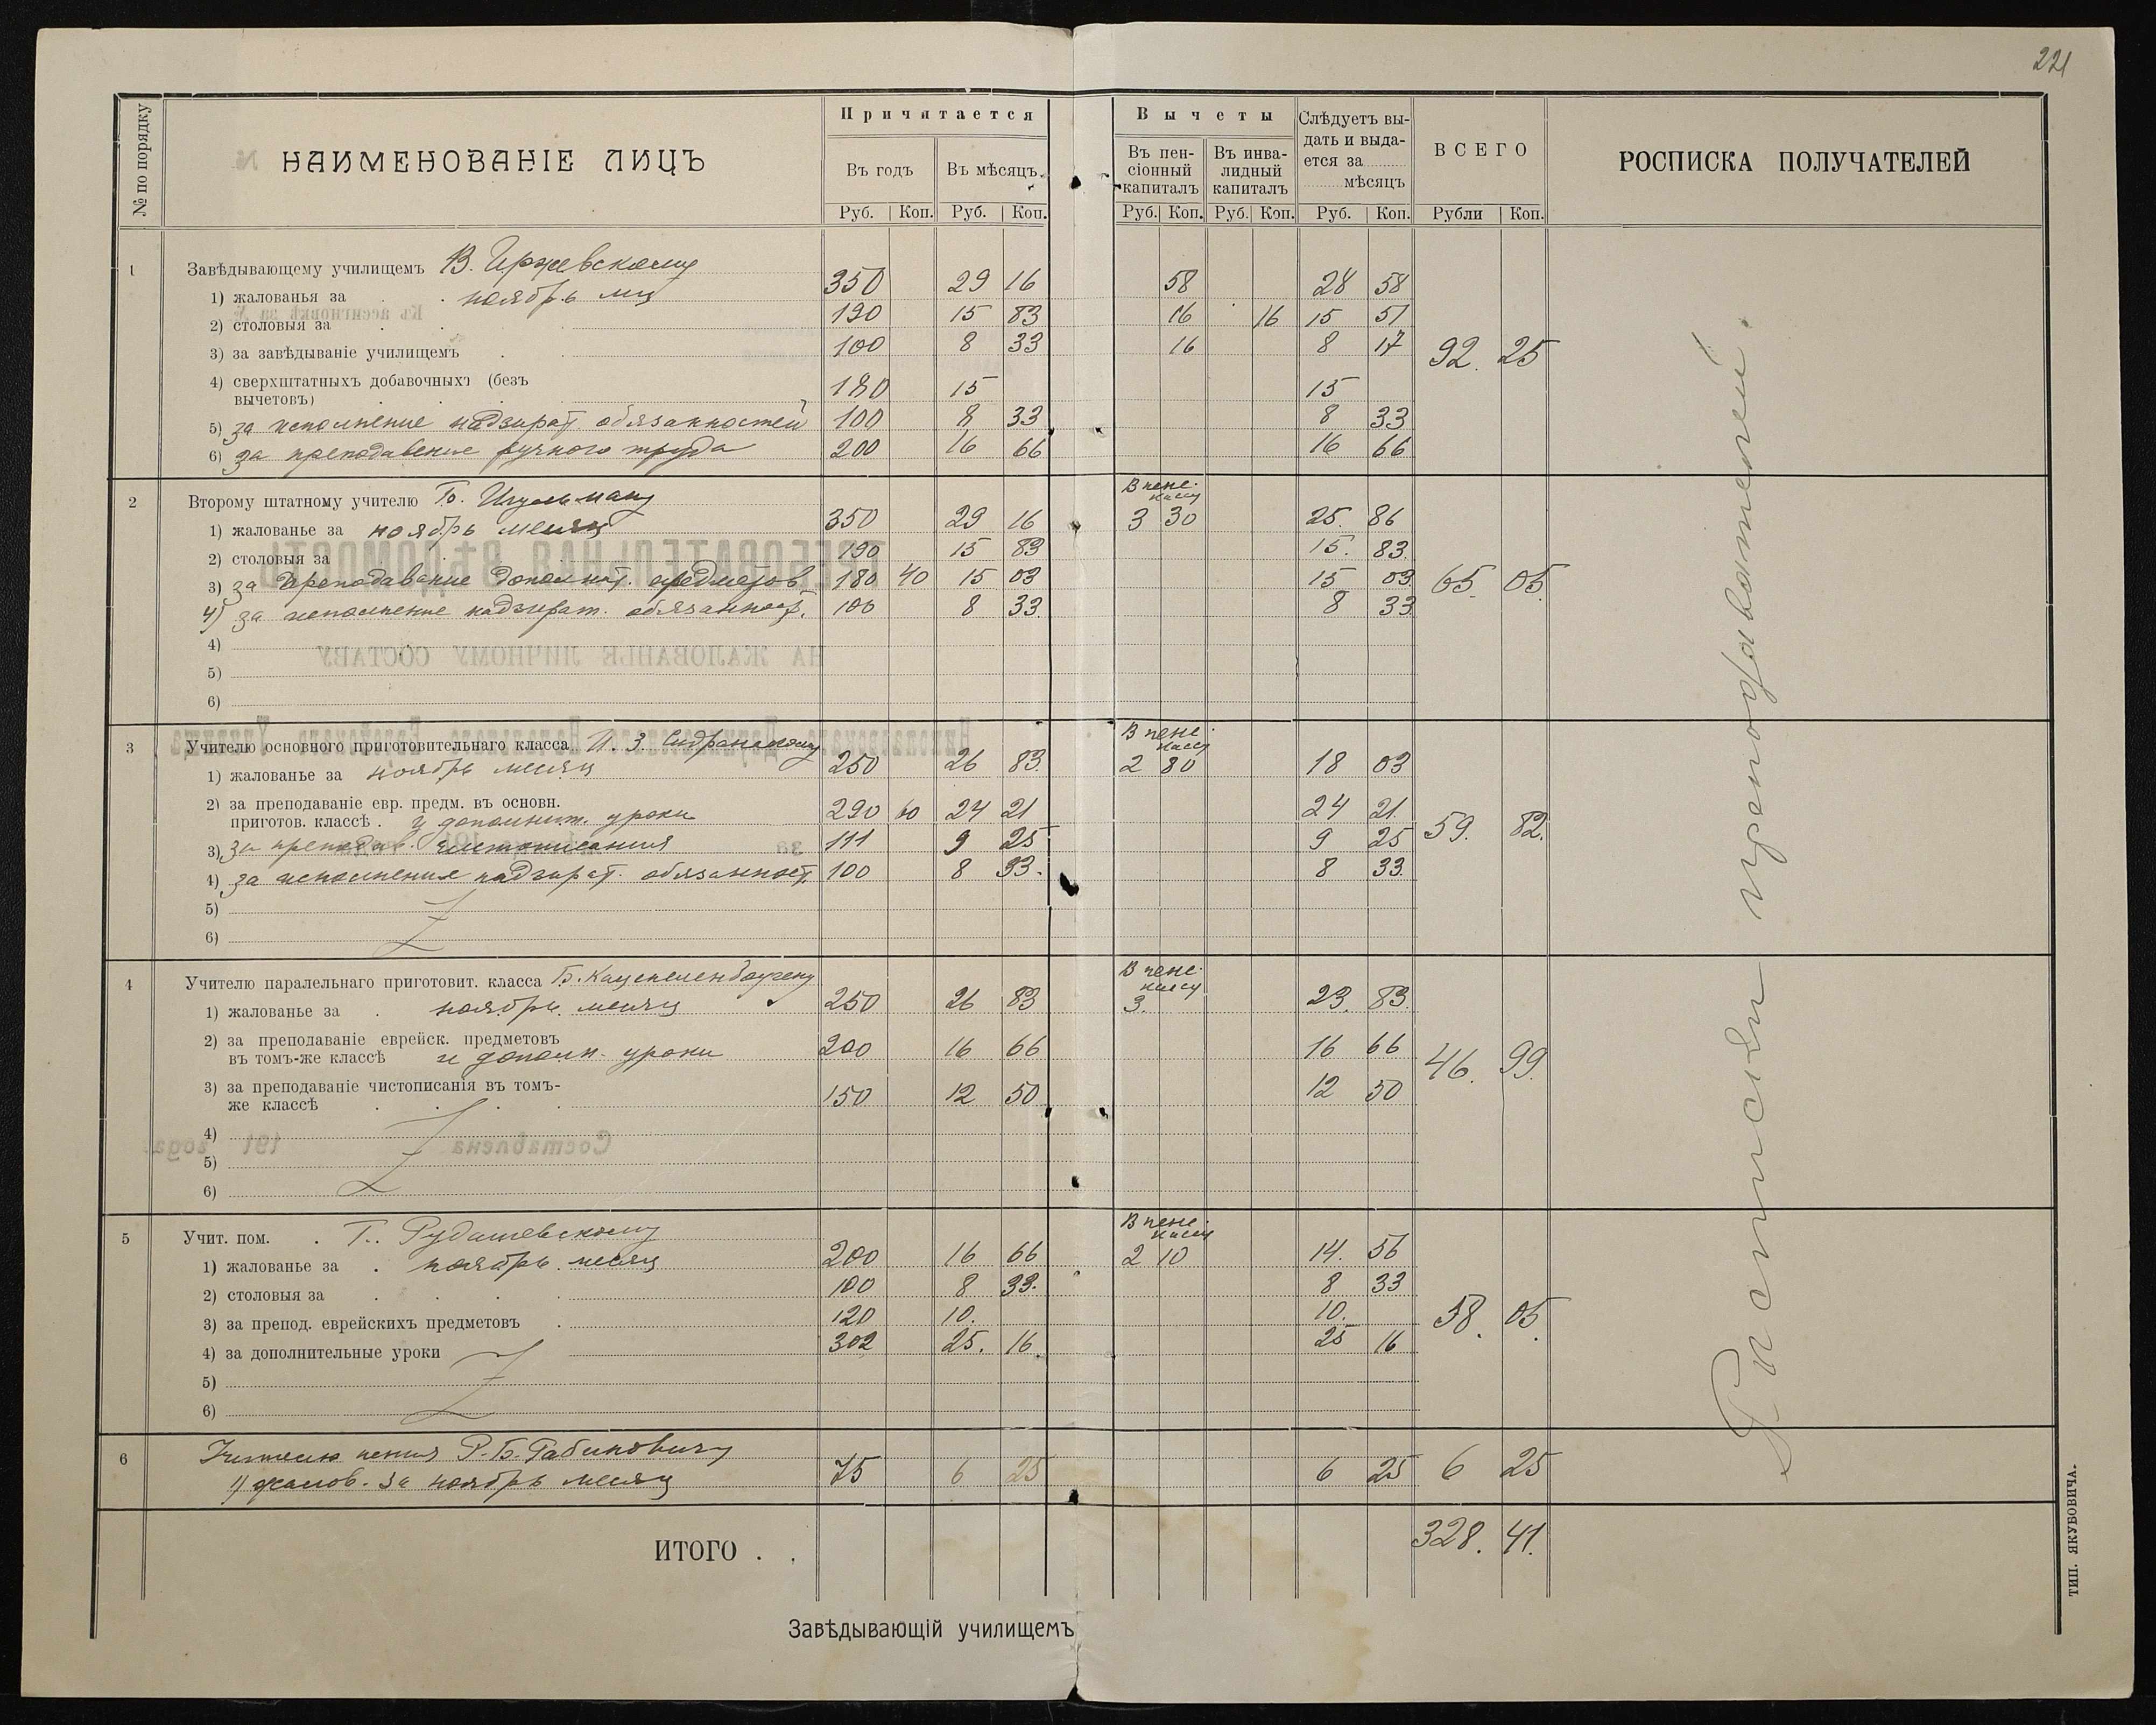 221
№ по порядку
НАИМЕНОВАНІЕ ЛИЦЪ
Причитается
Въ годъ Въ мѣсяцъ
Руб. Коп. Руб. Коп.
Вычеты
Въ пен-
сіонный
капиталъ
Въ инва-
лидный
капиталъ
Руб. Коп. Руб. Коп.
Слѣдуетъ вы-
дать и выда-
ется за
мѣсяцъ
Руб. Коп.
ВСЕГО
Рубли Коп.
РОСПИСКА ПОЛУЧАТЕЛЕЙ
1 Завѣдывающему училищемъ В. Иржевскому
1) жалованья за ноябрь мц 350 29 16 58 28 58
2) столовыя за 190 15 83 16 16 15 51
3) за завѣдываніе училищемъ 100 8 33 16 8 17 92. 25
4) сверхштатныхъ добавочныхъ (безъ
вычетовъ) 180 15 15
5) за исполнение надзират. обязанностей 100 8 33 8 33
6) за преподавение ручного труда 200 16 66 16 66
2 Второму штатному учителю Б. Шульману В пенс. кассу
1) жалованье за ноябрь месяц 350 29 16 3 30 25. 86
2) столовыя за 190 15 83 15. 83.
3) за преподавание дополнит. предметов 180 40 15 03 15 03. 65. 05.
4) за исполнение надзират. обязанност. 100 8 33. 8 33.
4)
5)
6)
3 Учителю основного приготовительнаго класса И. З. Сидранскому В пенс. кассу
1) жалованье за ноябрь месяц 250 26 83. 2 80 18 03
2) за преподаваніе евр. предм. въ основн.
приготов. классѣ. и дополнит. уроки 290 60 24 21 24 21.
3) за преподав. чистописания 111 9 25 9 25 59. 82.
4) за исполнения надзират. обязанност. 100 8 33. 8 33.
5)
6)
4 Учителю паралельнаго приготовит. класса Б. Каценеленбогену В пенс. кассу
1) жалованье за ноябрь месяц 250 26 83 3. 23. 83.
2) за преподаваніе еврейск. предметовъ
въ томъ-же классѣ и дополн. уроки 200 16 66 16 66 46. 99.
3) за преподаваніе чистописанія въ томъ-
же классѣ 150 12 50 12 50
4)
5)
6)
5 Учит. пом. Г. Рудашевскому В пенс. кассу
1) жалованье за ноябрь месяц 200 16 66 2 10 14. 56
2) столовыя за 100 8 33. 8 33
3) за препод. еврейскихъ предметовъ 120 10. 10. 58. 05.
4) за дополнительные уроки 302 25. 16. 25 16
5)
6)
6 Учителю пения Р. Б. Рабиновичу
1) жалов. за ноябрь месяц 75 6 25 6 25 6 25
ИТОГО . . 328. 41.
Расписки преподавателей.
Завѣдывающій училищемъ
ТИП. ЯКУБОВИЧА.
№
Къ ассигновкѣ за №
ТРЕБОВАТЕЛЬНАЯ ВѢДОМОСТЬ
НА ЖАЛОВАНЬЕ ЛИЧНОМУ СОСТАВУ
Еврейскаго Училища
за 191
Составлена 191 года